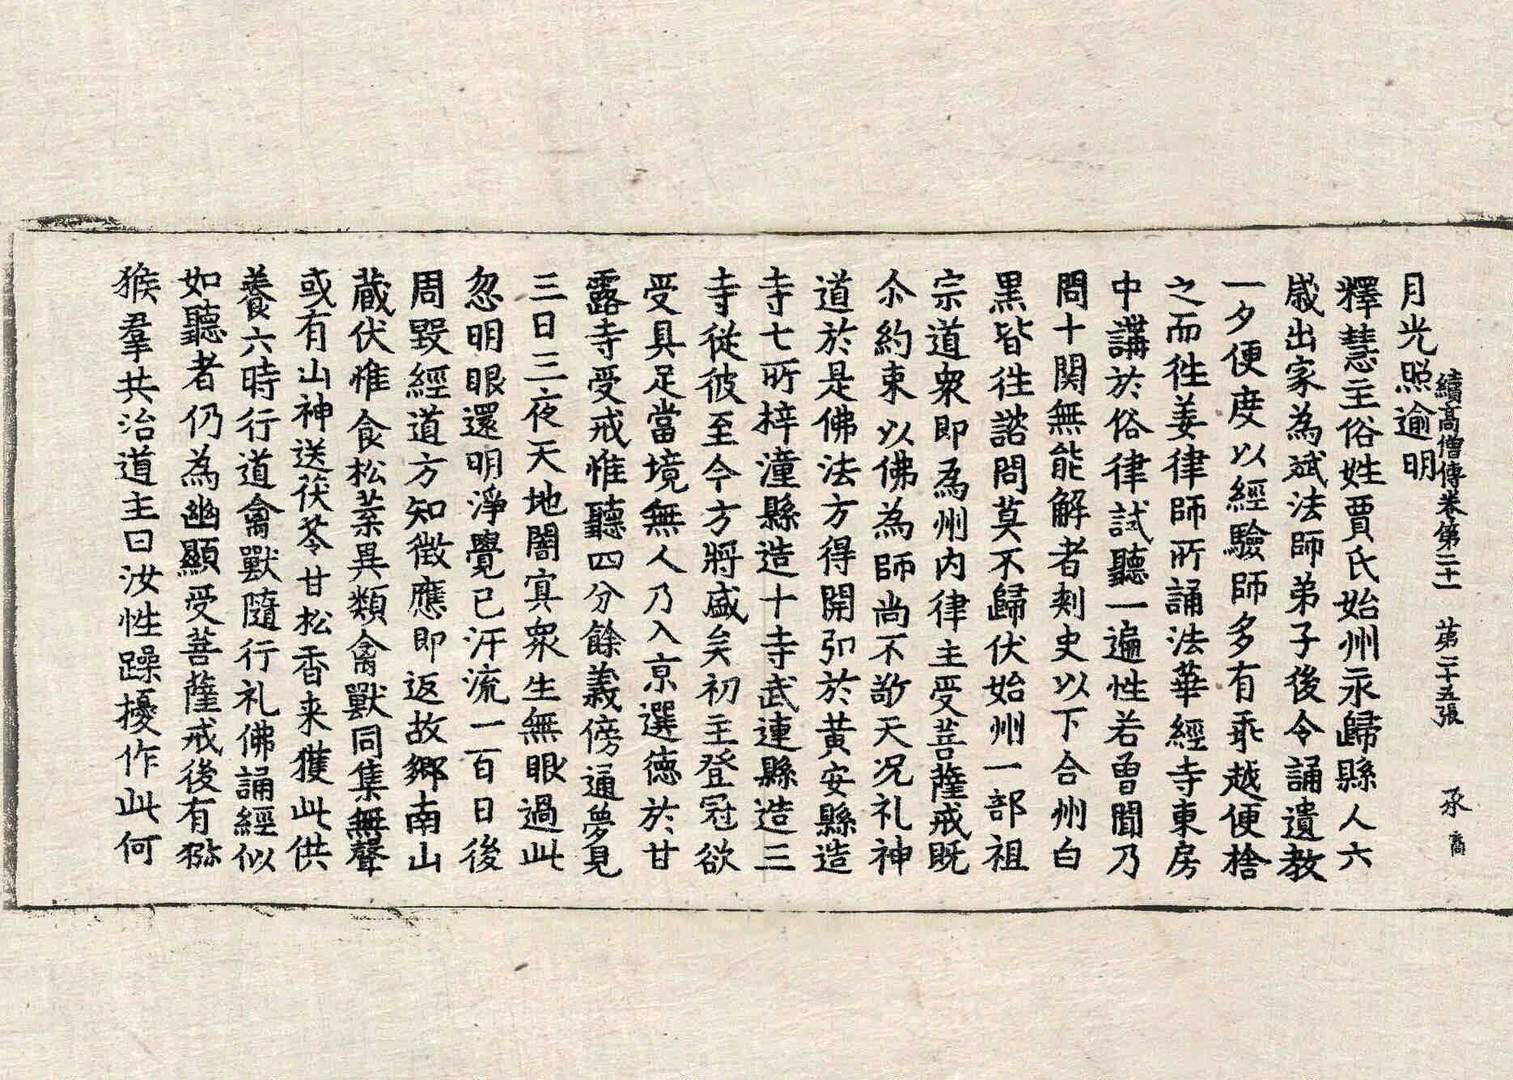 續高僧傳卷第二十一　第二十五張　承
月光照逾明
釋慧主俗姓賈氏始州永歸縣人六
歲出家為斌法師弟子後令誦遺教
一夕便度以經驗師多有乖越便捨
之而往姜律師所誦法華經寺東房
中講於俗律試聽一遍性若曾聞乃
問十関無能解者刾史以下合州白
黑皆往諮問莫不歸伏始州一部祖
宗道衆即為州内律主受菩薩戒既
尒約束以佛為師尚不敬天况礼神
道於是佛法方得開弘於黄安縣造
寺七所梓潼縣造十寺武連縣造三
寺從彼至今方將盛矣初主登冠欲
受具足當境無人乃入京選德於甘
露寺受戒惟聽四分餘義傍通夢見
三日三夜天地闇冥衆生無眼過此
忽明眼還明淨覺已汗流一百日後
周毀經道方知徵應即返故鄉南山
藏伏惟食松葉異類禽獸同集無聲
或有山神送茯苓甘松香来獲此供
養六時行道禽獸隨行礼佛誦經似
如聽者仍為幽顯受菩薩戒後有猕
猴羣共治道主曰汝性躁擾作此何